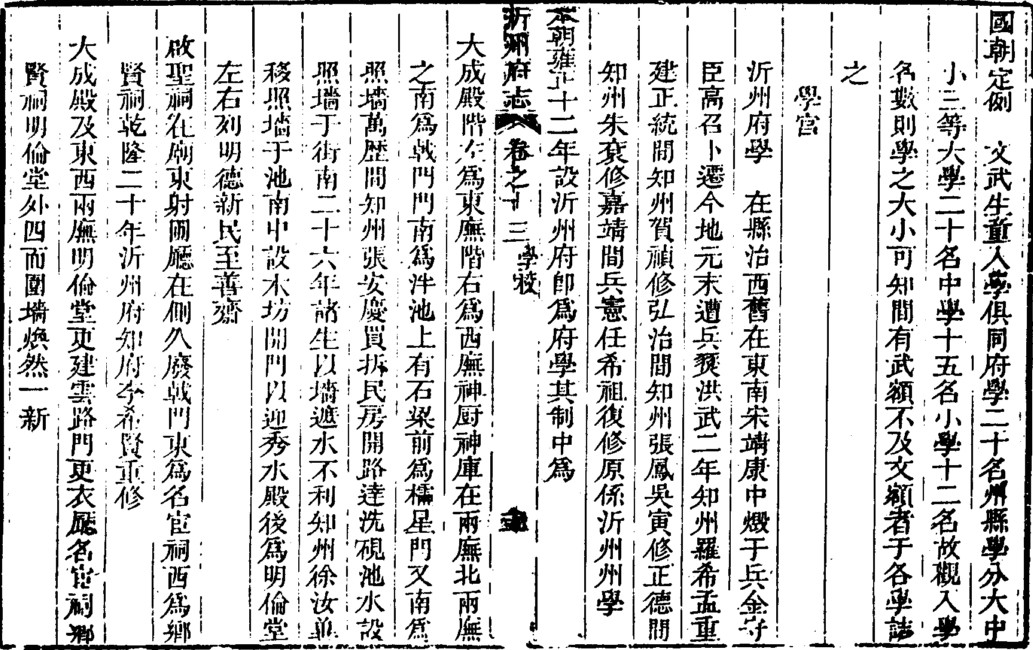 國朝定例　文武生童入學俱同府學二十名州縣學分大中
小三等大學二十名中學十五名小學十二名故觀入學
名數則學之大小可知間有武額不及文額者于各學誌
之
學宮
沂州府學　在縣治西舊在東南宋靖康中燬于兵金守
臣高召卜遷今地元末遭兵燹洪武二年知州羅希孟重
建正統間知州賀禎修弘治間知州張鳳吳寅修正德間
知州朱袞修嘉靖間兵憲任希祖復修原係沂州州學
本朝雍正十二年設沂州府卽為府學其制中為
沂州府志　卷之十三　學校
大成殿階左為東廡階右為西廡神厨神庫在兩廡北兩廡
之南為戟門門南為泮池上有石梁前為櫺星門又南為
照墻萬歷間知州張安慶買拆民房開路達洗硯池水設
照墻于街南二十六年諸生以墻遮水不利知州徐汝
移照墻于池南中設木坊開門以迎秀水殿後為明倫堂
左右列明德新民至善齋
啟聖祠在廟東射圃廳在側久廢戟門東為名宦祠西為鄉
賢祠乾隆二十年沂州府知府李希賢重修
大成殿及東西兩廡明倫堂更建雲路門更衣廳名宦祠鄉
賢祠明倫堂外四面圍墻煥然一新